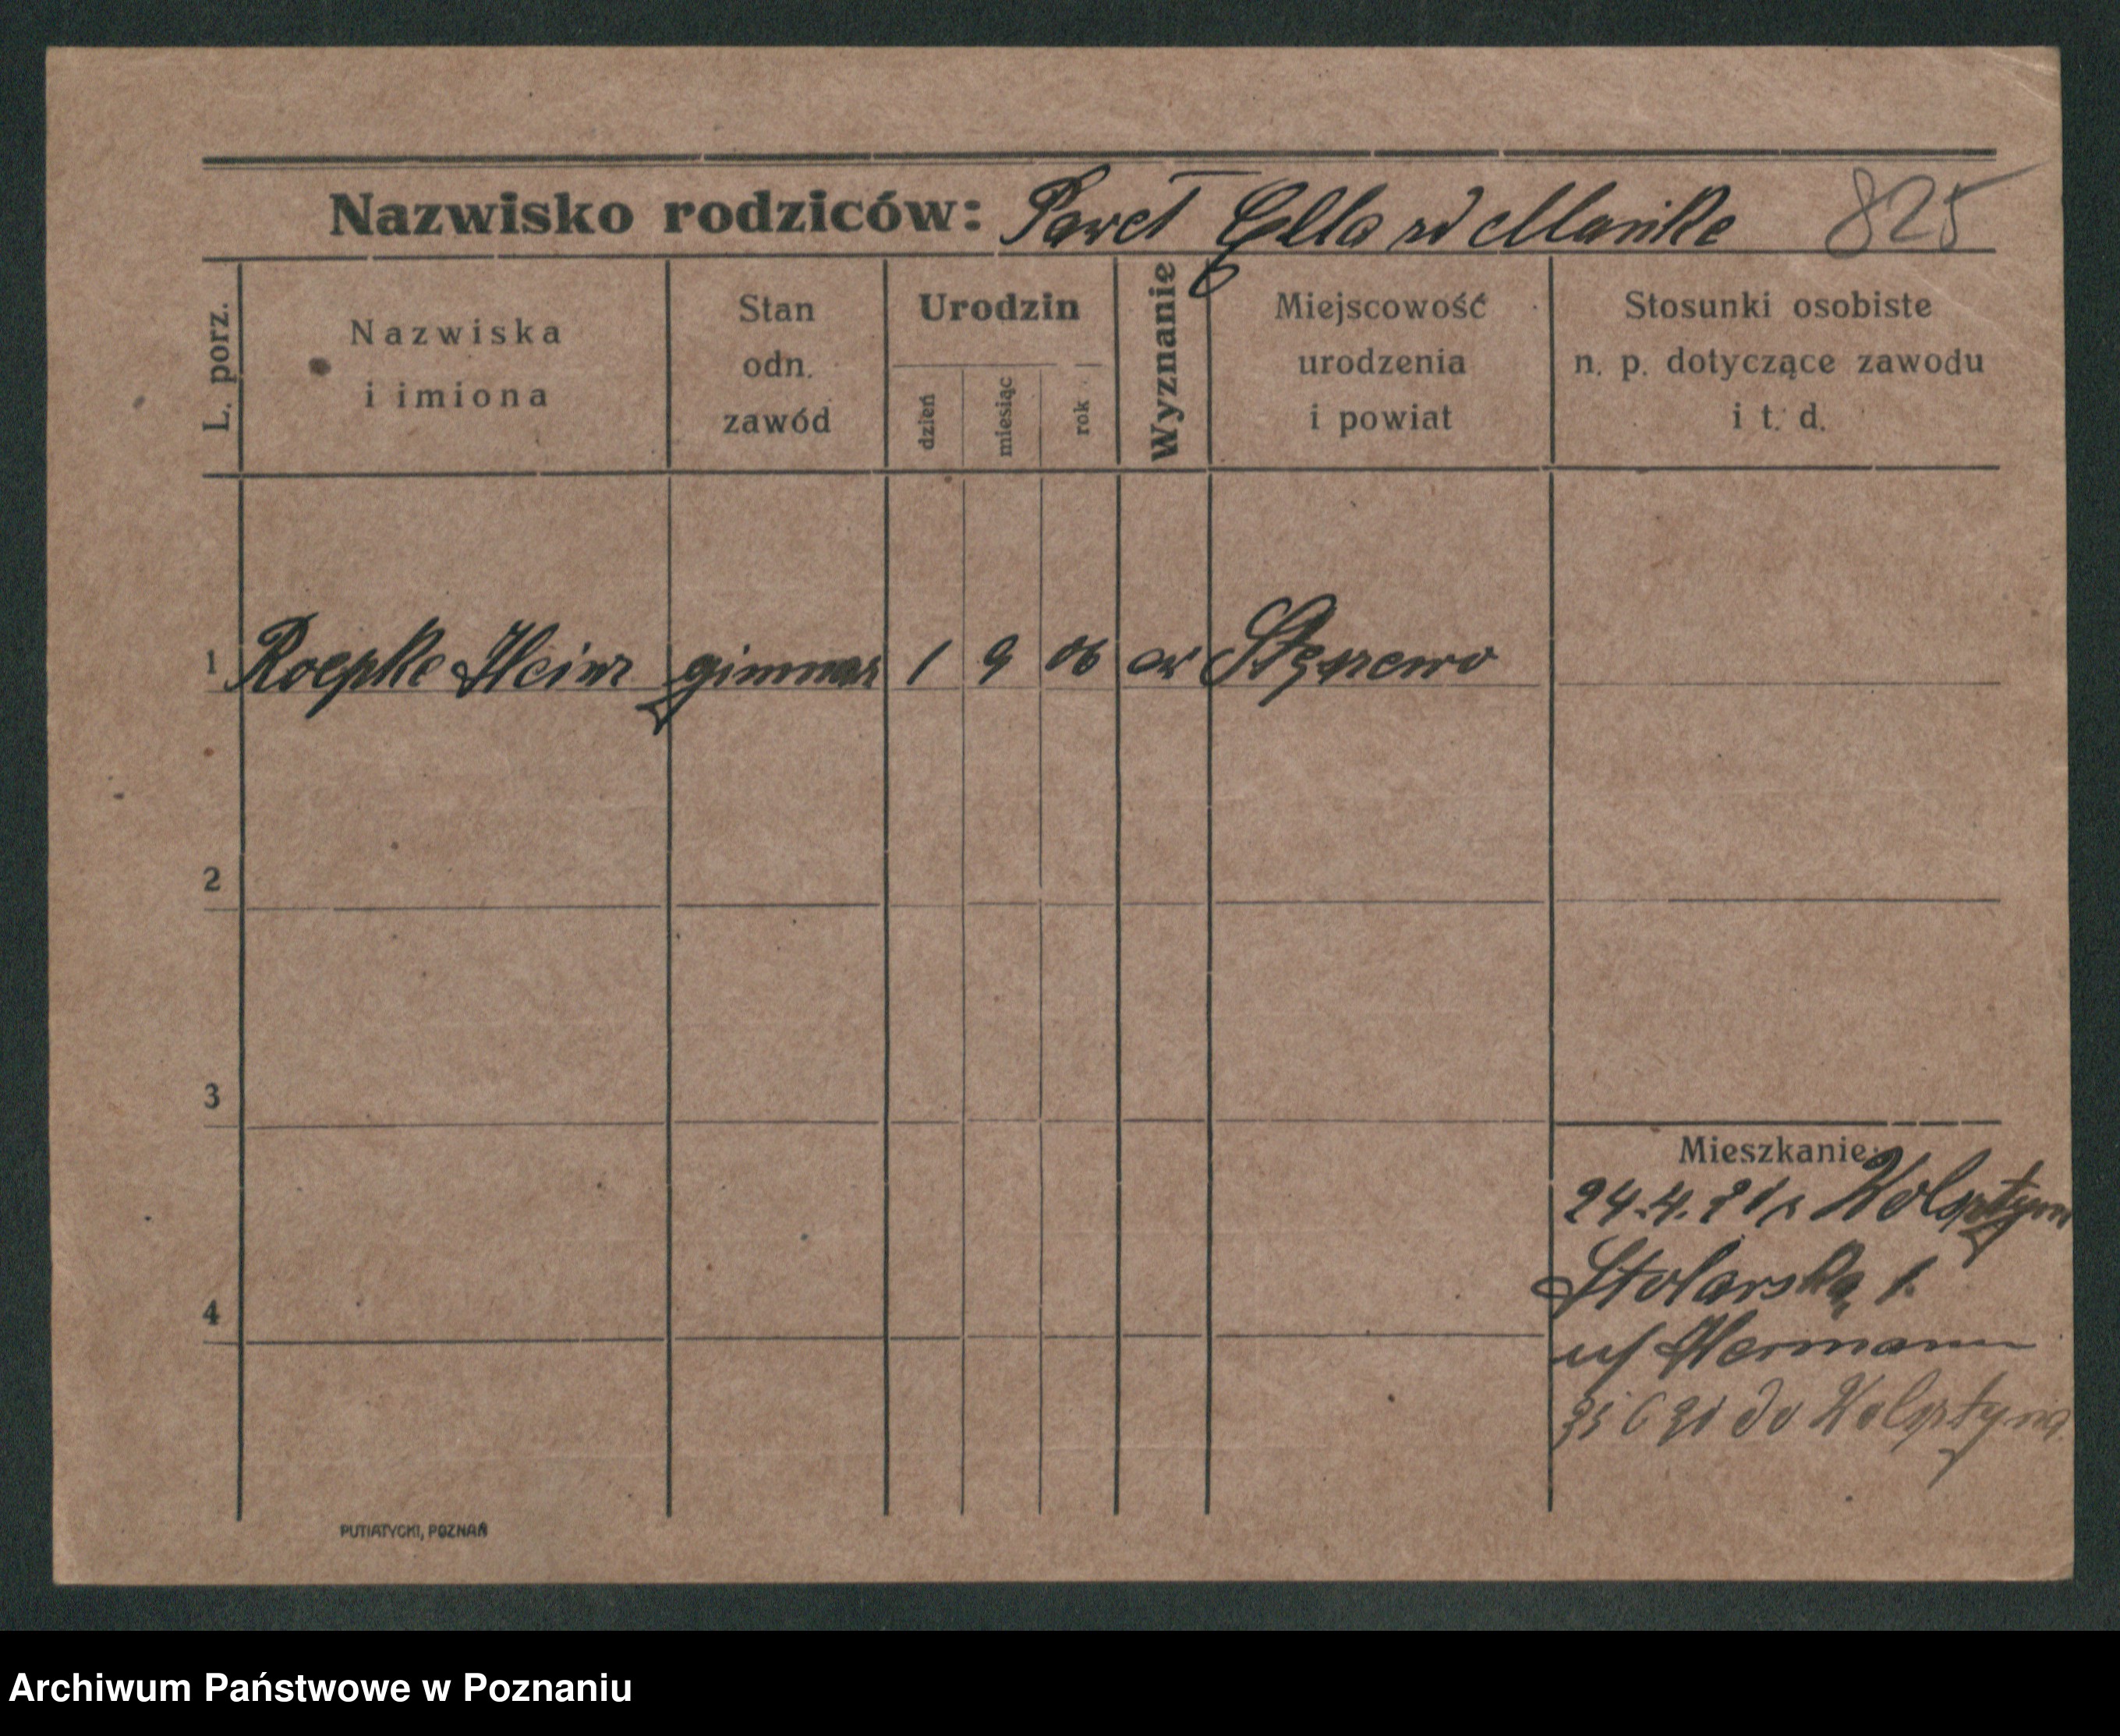 Nazwisko rodziców: Paweł Ella rd Manke 825
L. porz.
Nazwiska
i imiona
Stan
odn.
zawód
Urodzin
dzień
miesiąc
rok
Wyznanie
Miejscowość
urodzenia
i powiat
Stosunki osobiste
n. p. dotyczące zawodu
i t. d.
1 Roepke Heinz gimnaz 1 9 06 ew
2
3
Mieszkanie:
24.4.21 r Wolsztyn
Stolarska 1.
u/ Hermann
4
do Wolsztyna
PUTIATYCKI, POZNAŃ
Archiwum Państwowe w Poznaniu